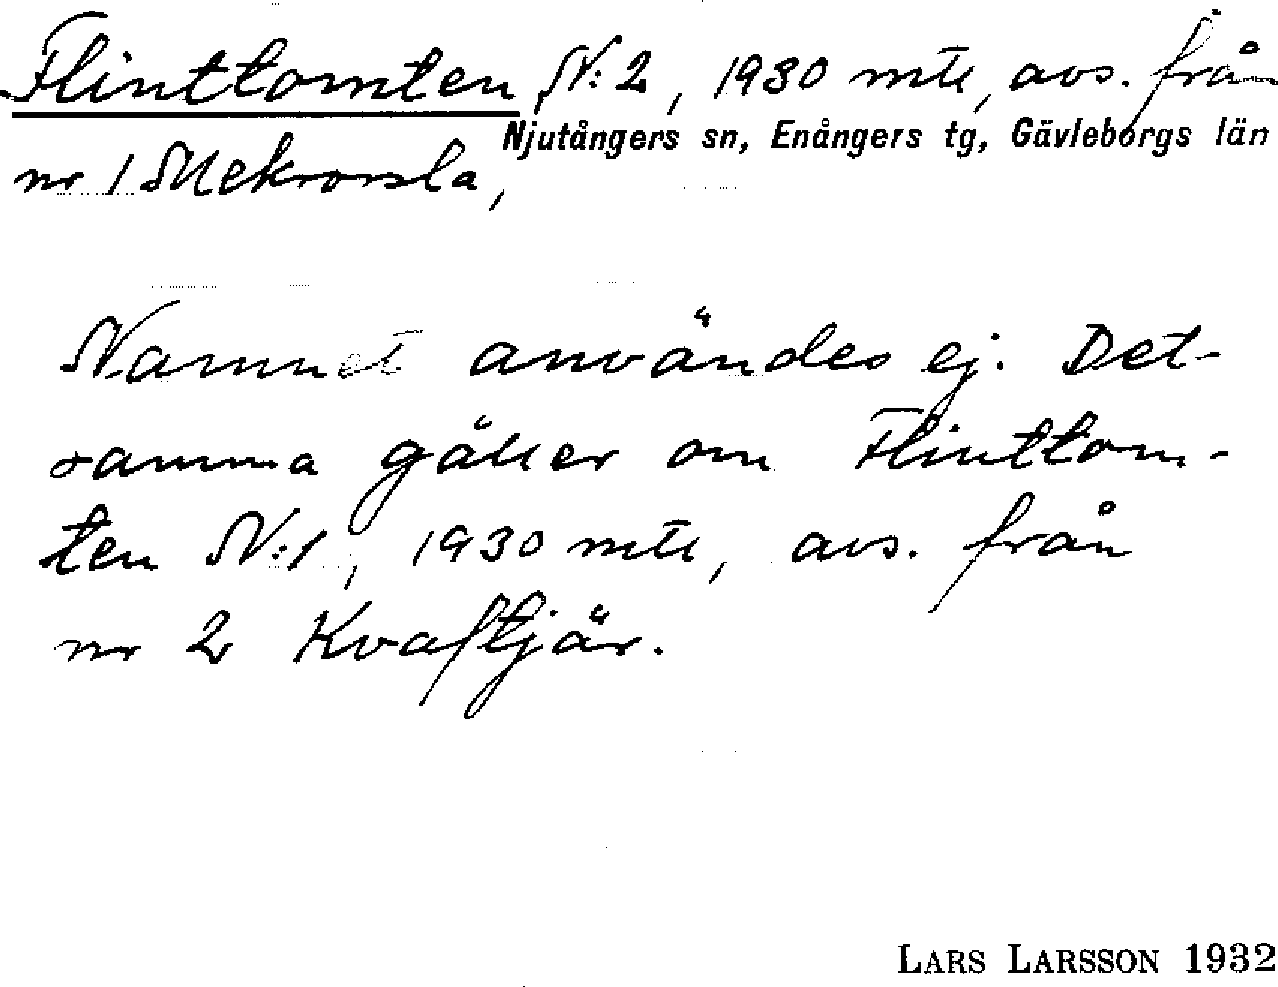 Flinttomten N:2, 1930 mtl, avs. från
Njutångers sn, Enångers tg, Gävleborgs län
nr 1 Mekrorsla,
Namnet användes ej. Det-
samma gäller om Flinttom-
ten N:1, 1930 mtl, avs. från
nr 2 Kvaftjär.
LARS LARSSON 1932